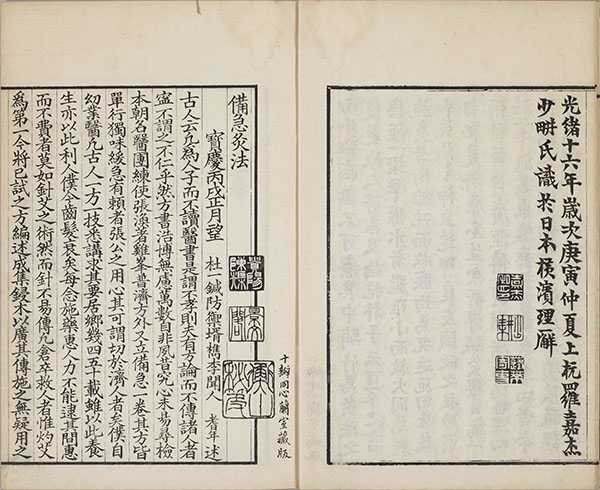 光緒十六年歲次庚寅仲夏上杭羅嘉杰
少畊氏識於日本橫濱理廨
十瓣同心蘭室藏版
備急灸法
寶慶丙戌正月望　杜一鍼防禦壻檇李聞人　耆年　述
古人云凡爲人子而不讀醫書是謂不孝則夫有方論而不傳諸人者
寍不謂之不仁乎然方書浩博無慮萬數自非夙昔究心未易尋檢
本朝名醫團練使張渙著雞峯普濟方外又立備急一卷其方皆
單行獨味緩急有賴者張公之用心其可謂切於濟人者矣僕自
幼業醫凡古人一方一技悉講求其要居鄉幾四五十載雖以此養
生亦以此利人僕今齒髮衰矣每念施藥惠人力不能逮其間惠
而不費者莫如針艾之術然而針不易傳凡倉卒救人者惟灼艾
爲第一今將已試之方編述成集鋟木以廣其傳施之無疑用之